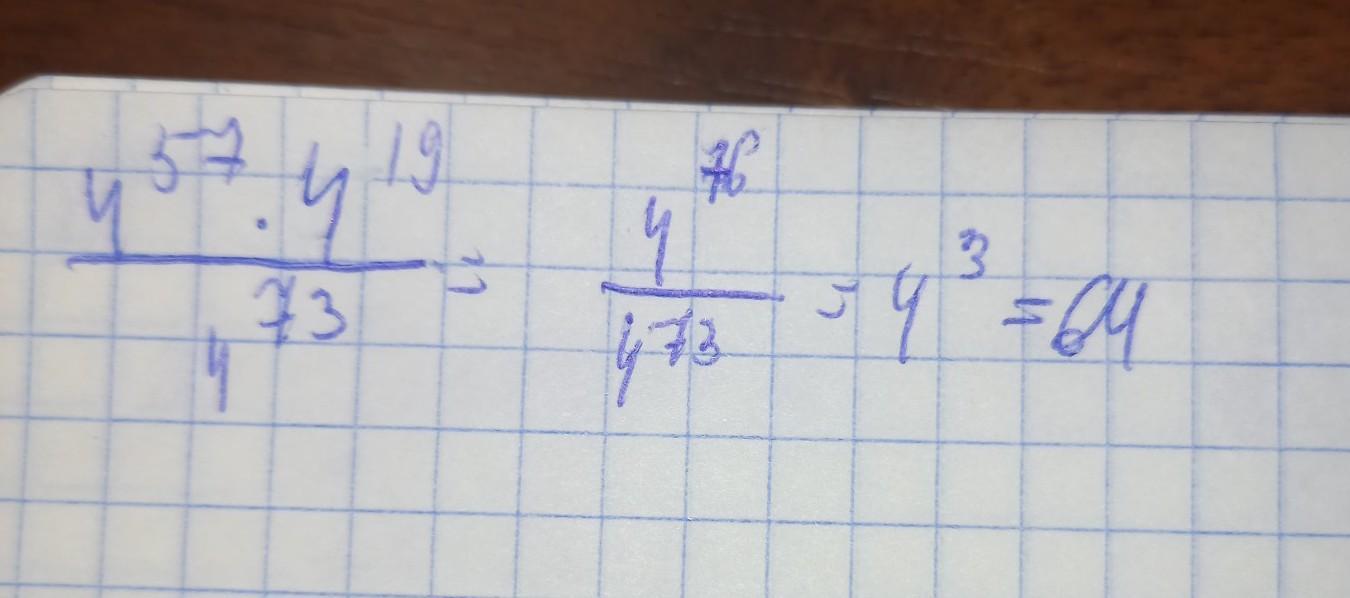 4^57 · 4^19 / 4^73 = 4^76 / 4^73 = 4^3 = 64